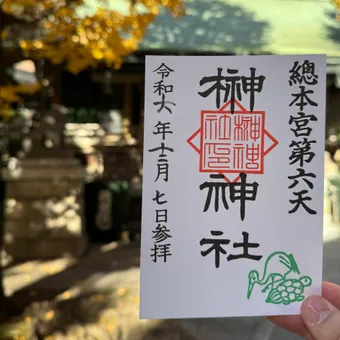 總本宮第六天
榊神社
榊神
社印
令和六年十二月七日参拝